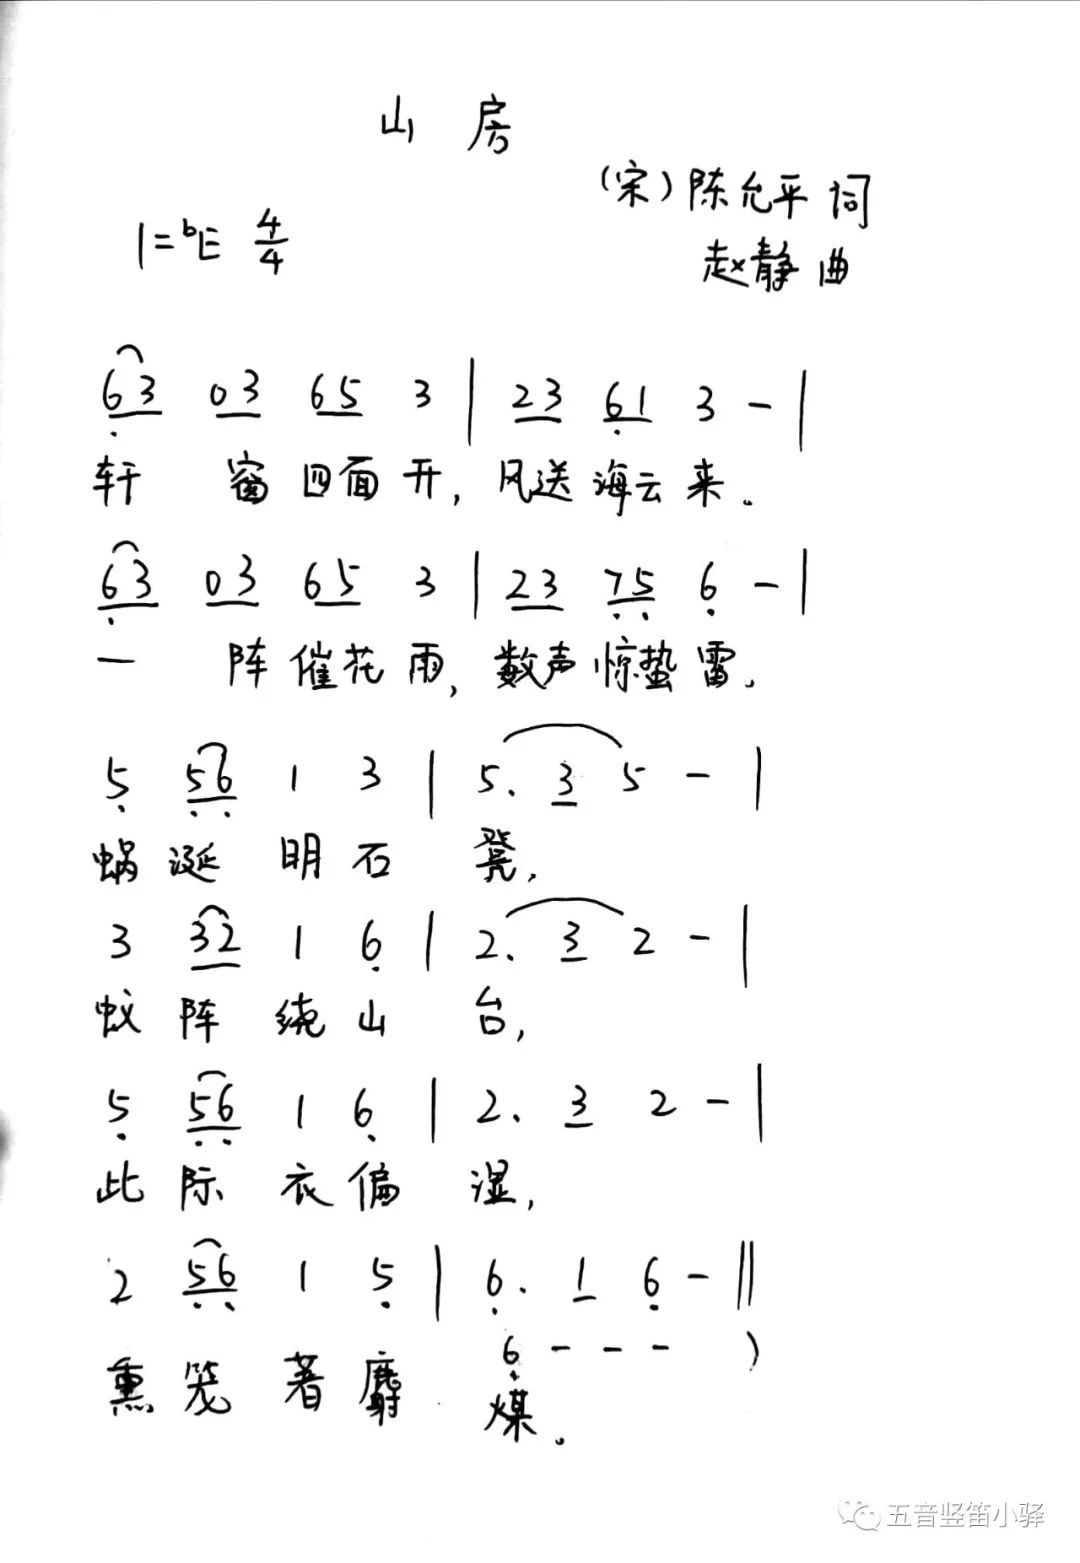 山房
(宋)陈允平词
1=bE 4/4
赵静曲
63 03 65 3 | 23 61 3 - |
轩窗四面开,风送海云来。
63 03 65 3 | 23 75 6 - |
一阵催花雨,数声惊蛰雷。
5 56 1 3 | 5. 3 5 - |
蜗涎明石凳,
3 32 1 6 | 2. 3 2 - |
蚊阵绕山台,
5 56 1 6 | 2. 3 2 - |
此际衣偏湿,
2 56 1 5 | 6. 1 6 - ||
6 - - - )
熏笼著麝煤。
五音竖笛小驿